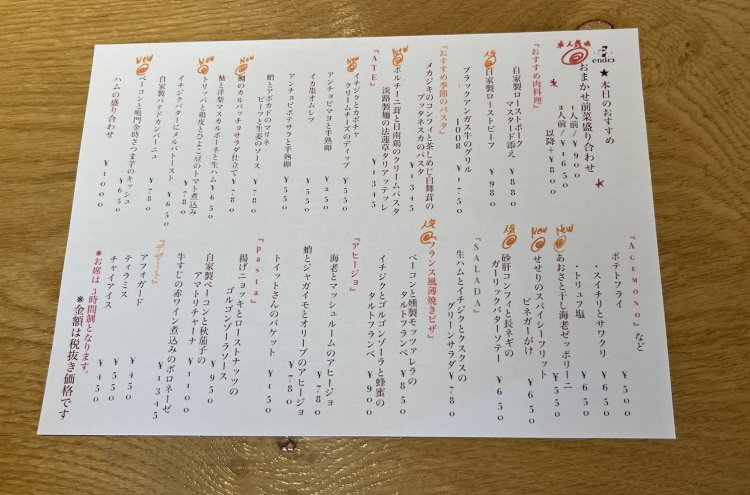 endo
★本日のおすすめ
人気
おまかせ前菜盛り合わせ
1人前/¥900
2人前/¥1650
以降+¥800
『おすすめ肉料理』
自家製ローストポーク
マスタード添え ¥880
人気
自家製ローストビーフ
¥980
ブラックアンガス牛のグリル
100g ¥1750
『おすすめ季節のパスタ』
メカジキのコンフィと茶しめじ白舞茸の
プッタネスカのパスタ 1345
New
ポルチーニ茸と日南鶏のクリームパスタ
淡路製麺の法蓮草タリアテッレ
¥1345
『ATE』
New
イチジクとカボチャ
クリームチーズのディップ
¥550
アンチョビマヨと半熟卵
¥250
イカ墨オムレツ
¥550
アンチョビポテサラと半熟卵
¥550
蛸とアボカドのマリネ
ビーツと生姜のソース
¥780
New
鯛のカルパッチョサラダ仕立て¥780
柿と洋梨マスカルポーネと生ハム¥650
New
トリッパと鶏皮とひよこ豆のトマト煮込み
¥780
イチジクバターにメルバトースト
¥650
自家製パテドカンパーニュ
¥780
New
ベーコンと鳴門金時さつま芋のキッシュ
¥650
ハムの盛り合わせ
¥1000
『AGEMONO』など
ポテトフライ
¥500
・スイチリとサワクリ
¥650
・トリュフ塩
¥650
New
あおさと干し海老ゼッポリーニ
¥550
New
せせりのスパイシーフリット
ビネガーがけ
¥650
人気
砂肝コンフィと長ネギの
ガーリックバターソテー
¥650
『SALADA』
生ハムとイチジクとクスクスの
グリーンサラダ ¥780
『フランス風薄焼きピザ』
人気
ベーコンと燻製モッツァレラの
タルトフランベ ¥850
イチジクとゴルゴンゾーラと蜂蜜の
タルトフランベ ¥900
『アヒージョ』
海老とマッシュルームのアヒージョ
¥780
蛸とジャガイモとオリーブのアヒージョ
¥780
トイットさんのバケット
¥150
『pasta』
揚げニョッキとローストナッツの
ゴルゴンゾーラソース
¥1100
自家製ベーコンと秋茄子の
アマトリチャーナ
牛すじの赤ワイン煮込みのボロネーゼ
¥1345
『デザート』
アフォガード
¥450
ティラミス
¥550
チャイアイス
¥450
※お席は3時間制となります。
※金額は税抜き価格です